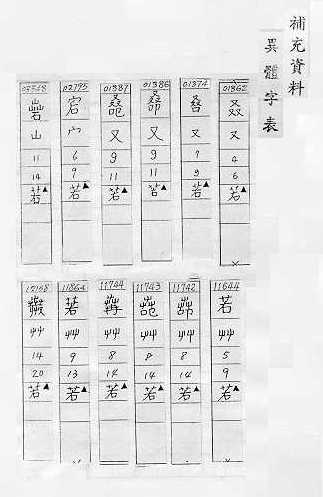 補充資料
異體字表
01362
叒
又
4
6
若▲
01374
又
7
9
若▲
01386
又
9
11
若▲
01387
又
9
11
若▲
02795
宀
6
9
若▲
山
11
14
若▲
11644
若
艸
5
9
若▲
11742
艸
8
14
若▲
11743
艸
8
14
若▲
11744
艸
8
14
若▲
11864
艸
9
13
若▲
艸
14
20
若▲